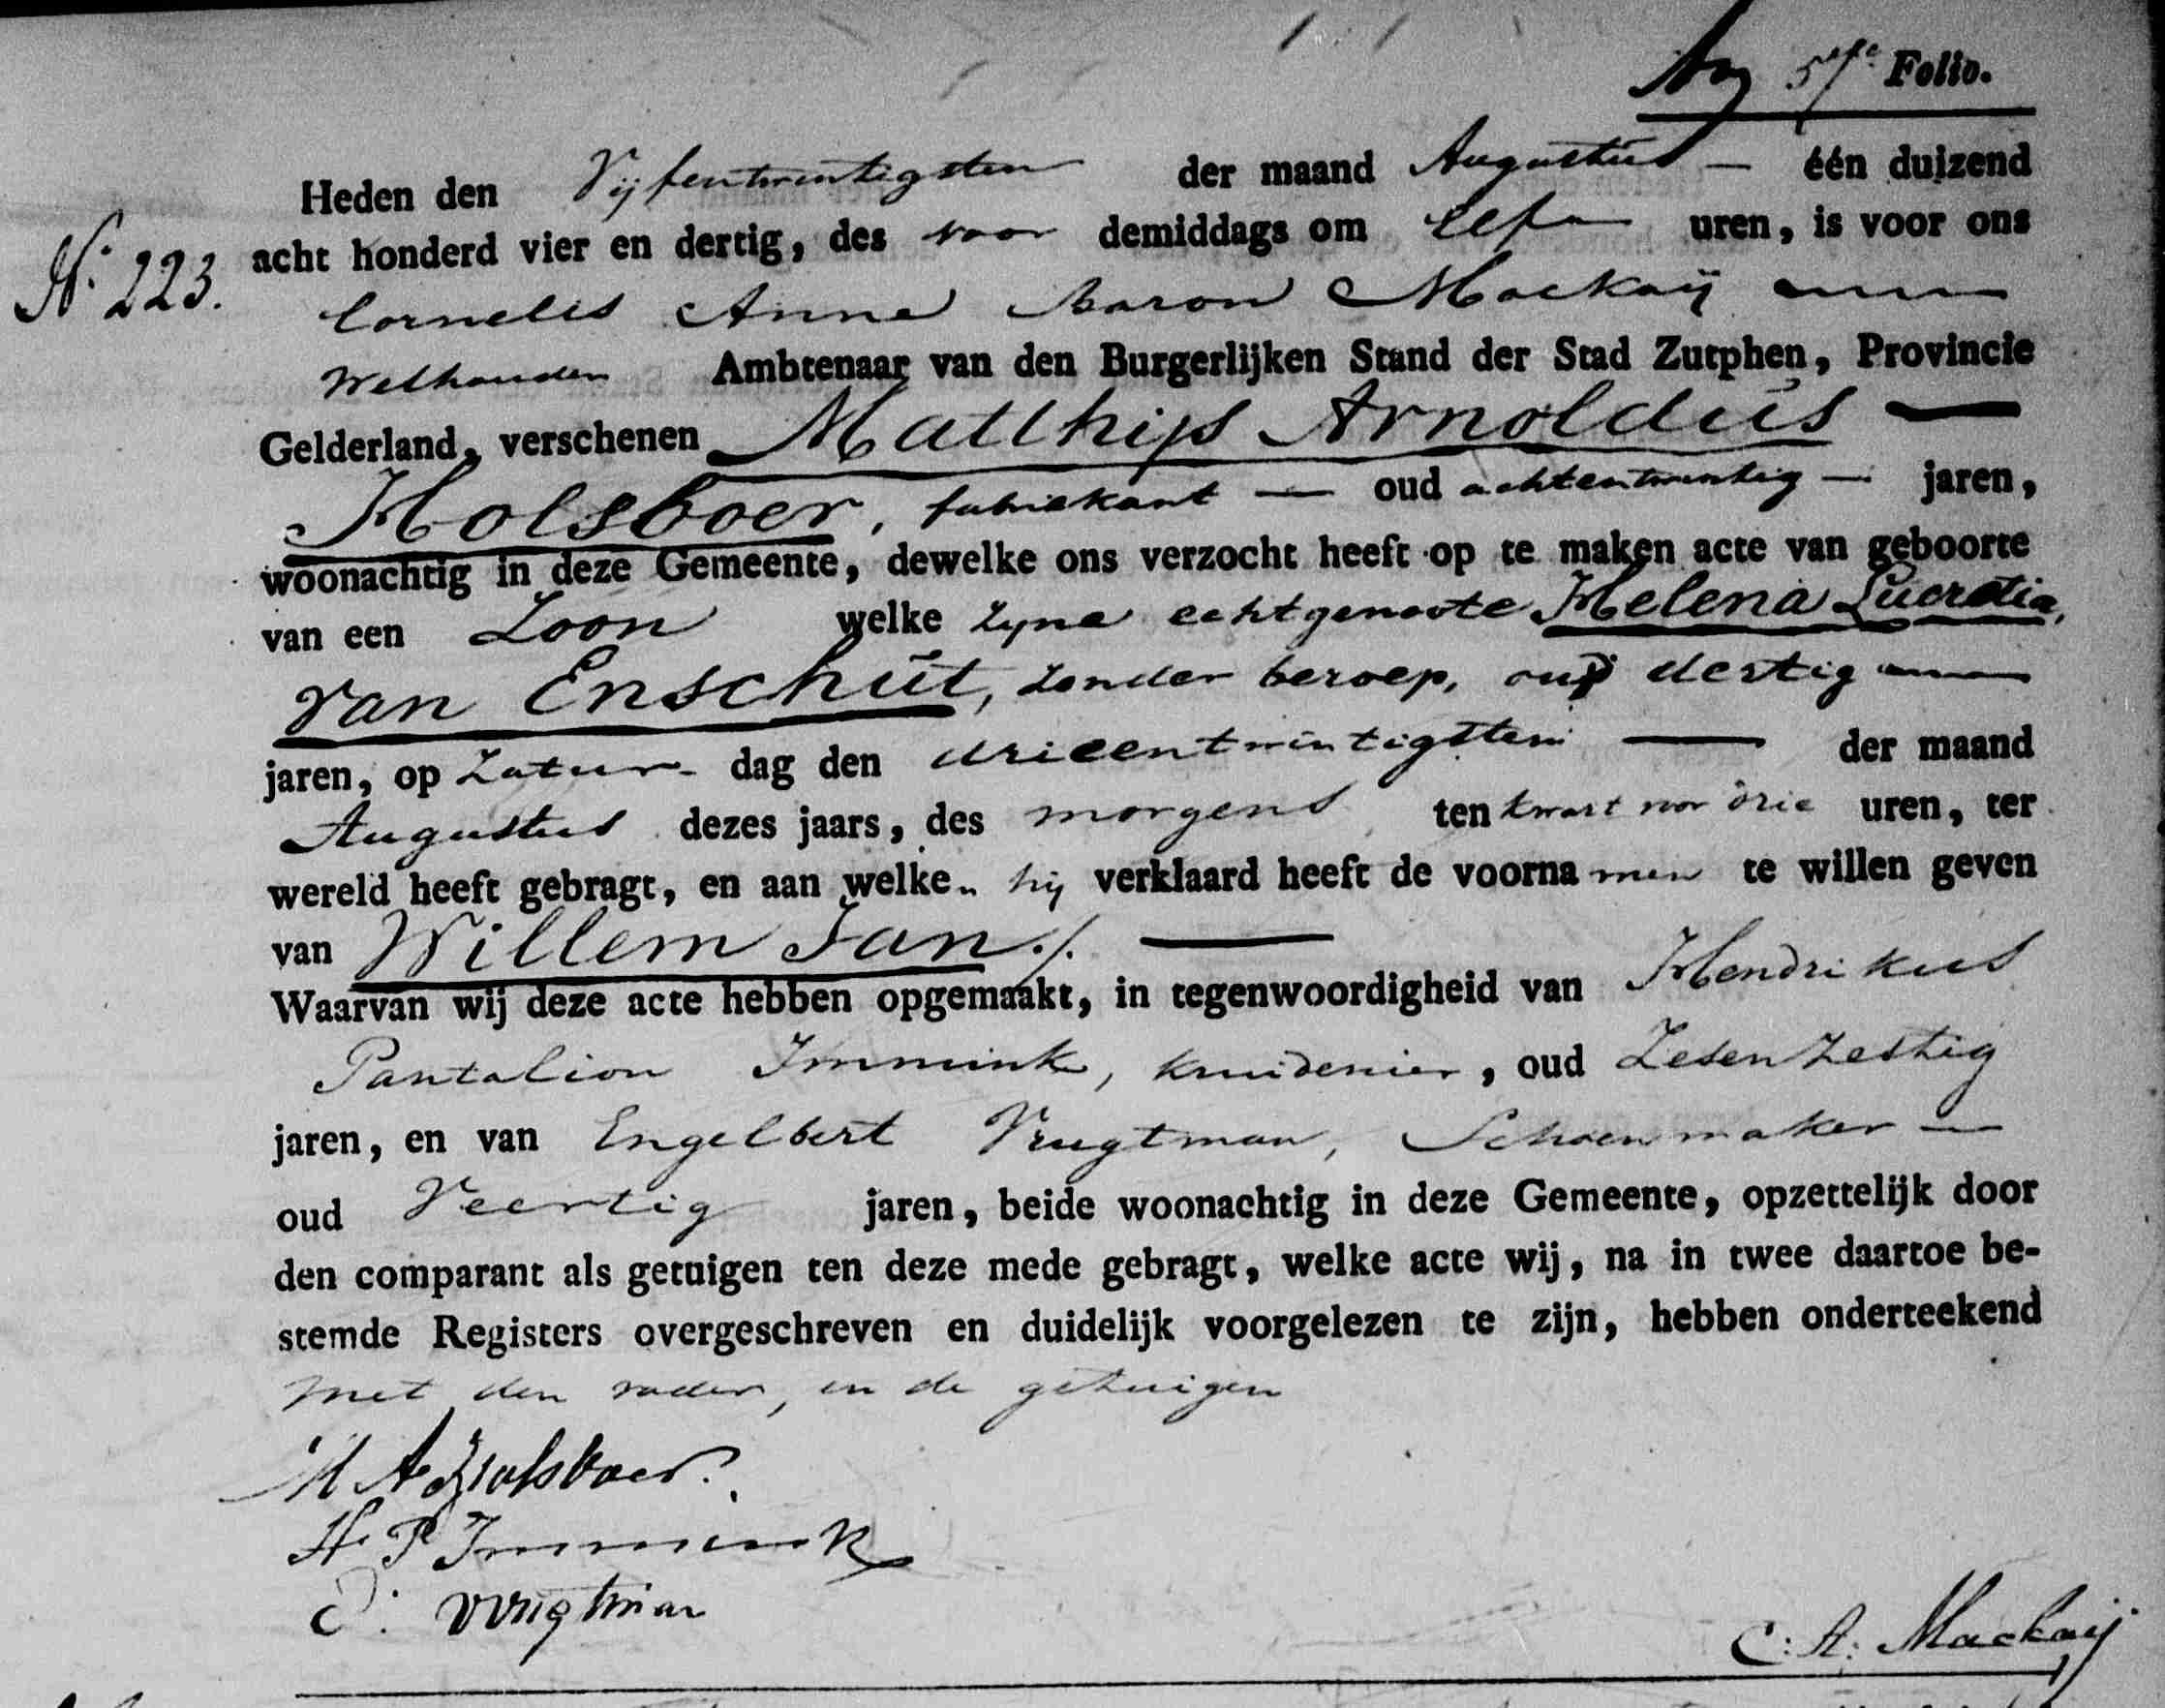 5de Folio.
Heden den Vijfentwintigsten der maand Augustus — één duizend
N: 223. acht honderd vier en dertig, des voor demiddags om elf uren, is voor ons
Cornelis Anne Baron Mackaij
Wethouder Ambtenaar van den Burgerlijken Stand der Stad Zutphen, Provincie
Gelderland, verschenen Matthijs Arnoldus —
Holsboer, fabriekant — oud achtentwintig — jaren,
woonachtig in deze Gemeente, dewelke ons verzocht heeft op te maken acte van geboorte
van een Zoon welke Zyne echtgenoote Helena Lucretia,
van Enschut, zonder beroep, oud dertig
jaren, op Zatur- dag den drieentwintigsten — der maand
Augustus dezes jaars, des morgens ten kwart voor drie uren, ter
wereld heeft gebragt, en aan welke hij verklaard heeft de voorna men te willen geven
van Willem Jan ./. —
Waarvan wij deze acte hebben opgemaakt, in tegenwoordigheid van Hendrikus
Pantalion Immink, kruidenier, oud Zesenzestig
jaren, en van Engelbert Vrugtman, Schoenmaker —
oud Veertig jaren, beide woonachtig in deze Gemeente, opzettelijk door
den comparant als getuigen ten deze mede gebragt, welke acte wij, na in twee daartoe be-
stemde Registers overgeschreven en duidelijk voorgelezen te zijn, hebben onderteekend
met den vader, en de getuigen
M A Holsboer.
H. P Immink
E: Vrugtman
C: A: Mackaij